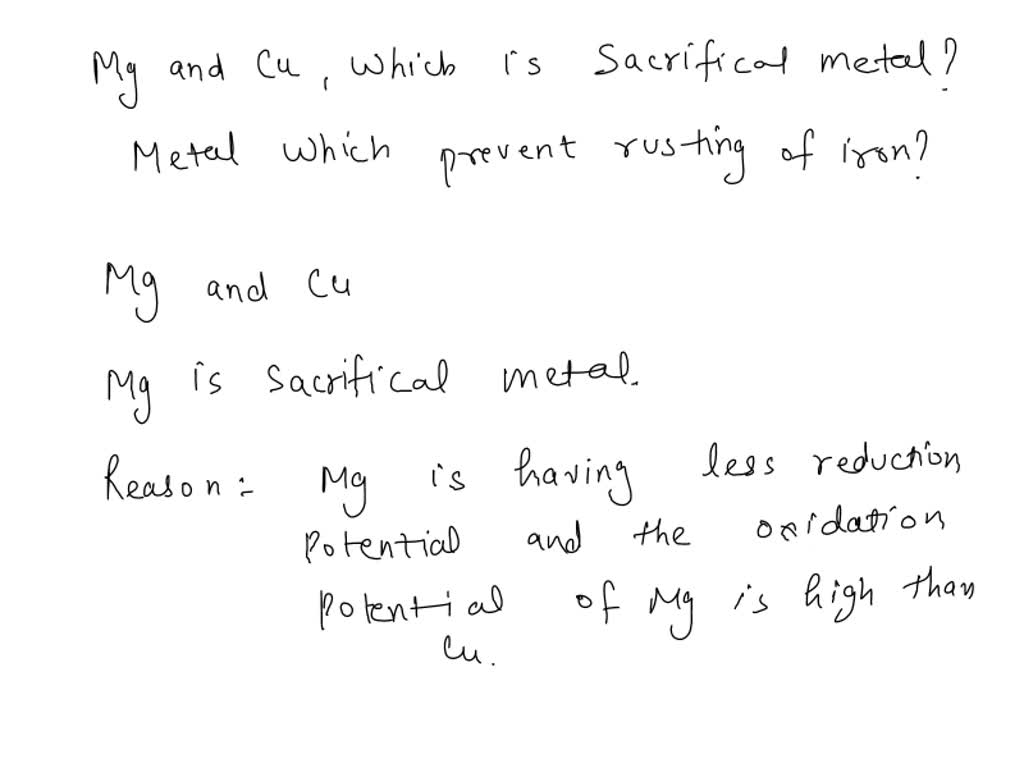 Mg and Cu, which is Sacrifical metal?
Metal which prevent rusting of iron?
Mg and Cu
Mg is sacrifical metal.
Reason:- Mg is having less reduction
potential and the oxidation
potential of Mg is high than
Cu.